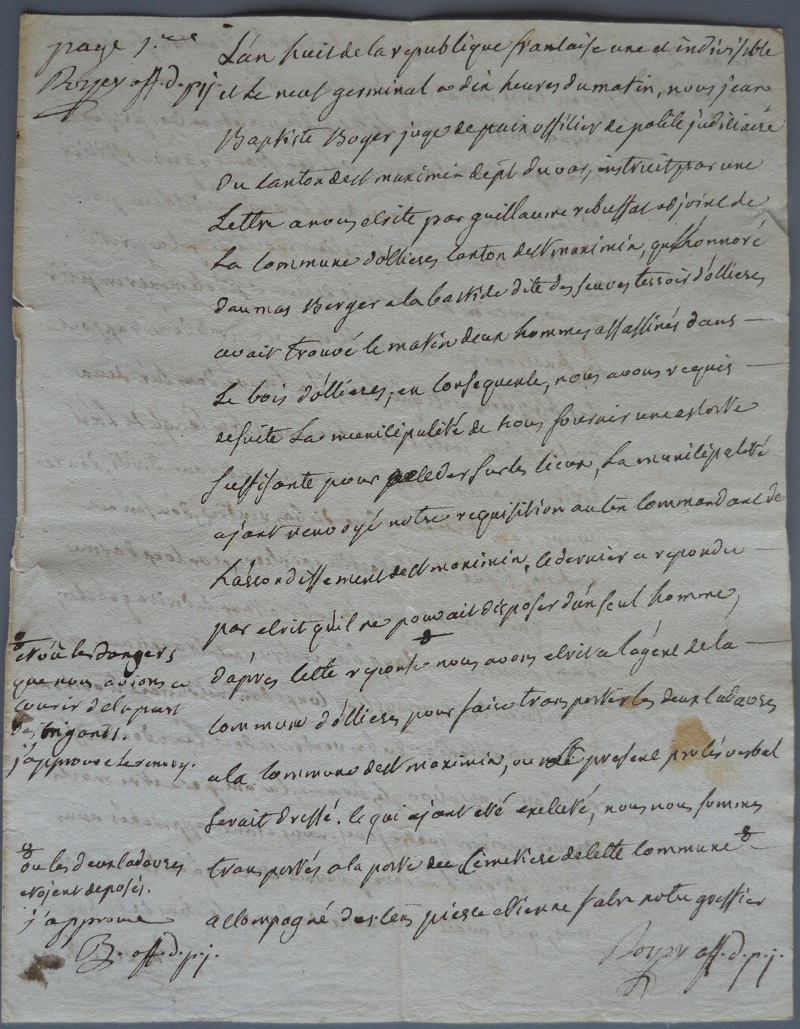 page 1.ere
Boyer off. d. p. j.
L'an huit de la republique francaise une et indivisible
et le neuf germinal a dix heures du matin, nous jean
Baptiste Boyer juge de paix officier de police judiciaire
du canton de st maximin dept. du var, instruit par une
Lettre a nous ecrite par guillaume rebuffat adjoint de
La commune d'ollieres canton de st maximin, que honnoré
daumas Berger a la bastide dite des seuves terroir d'ollieres
avait trouvé le matin deux hommes assassinés dans
Le bois d'ollieres, en consequence, nous avons requis
de suite La municipalité de nous fournir une escorte
suffisante pour proceder sur les lieux, La municipalité
ajant renvoyé notre requisition au cen commandant de
L'arrondissement de st maximin, ce dernier a repondu
par ecrit qu'il ne pouvait disposer d'un seul homme,
d'après cette reponse nous avons ecrit a l'agent de la
commune d'ollieres pour faire transporter les deux cadavres
a la commune de st maximin, ou le present procés verbal
serait dressé. ce qui ajant eté exécuté, nous nous sommes
transportés a la porte du Cimetiere de cette commune
accompagné du cen pierre etienne fabre notre greffier
et vû les dangers
que nous avions a
courir de la part
des brigands.
j'approuve le renvoy.
ou les deux cadavres
etojent deposés.
j'approuve
B. off. d. p. j.
Boyer off. d. p. j.